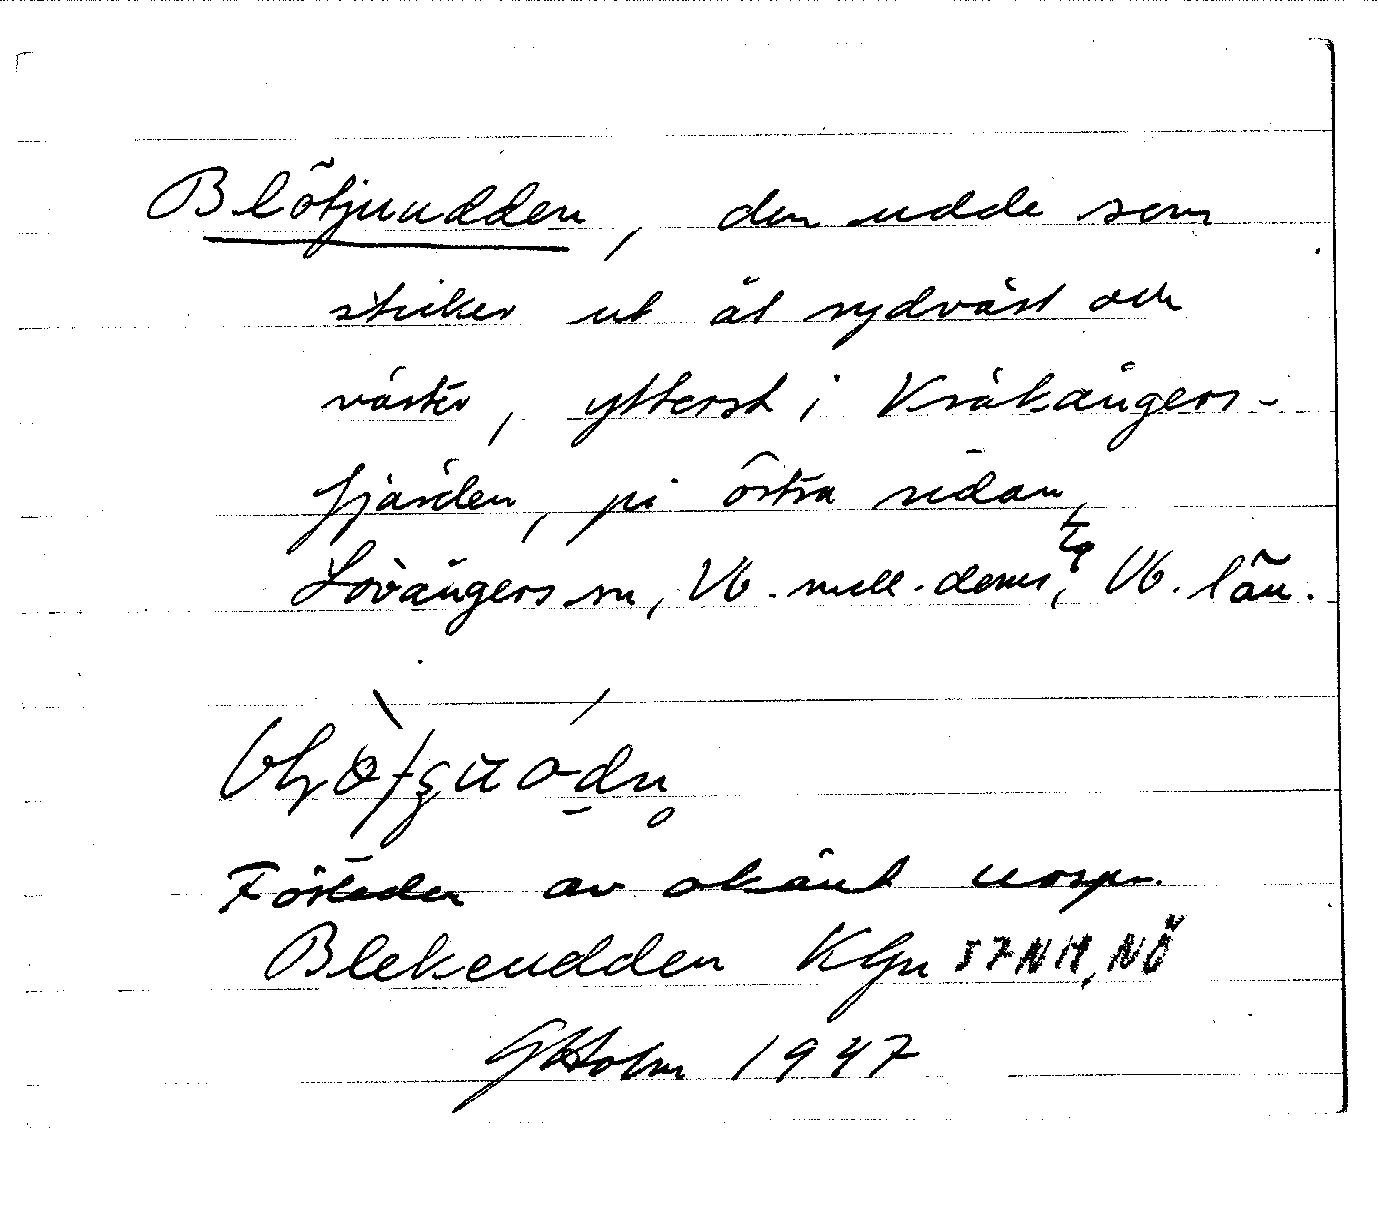 Blötjuudden, den udde som
sticker ut åt sydväst och
väster, ytterst i Kråkångers-
fjärden, på östra sidan,
Lövångers sn, Vb. mell. doms, Vb. län.
Förleden av okänt urspr.
Blekeudden Kfn 57 NM, NÖ
GHolm 1947